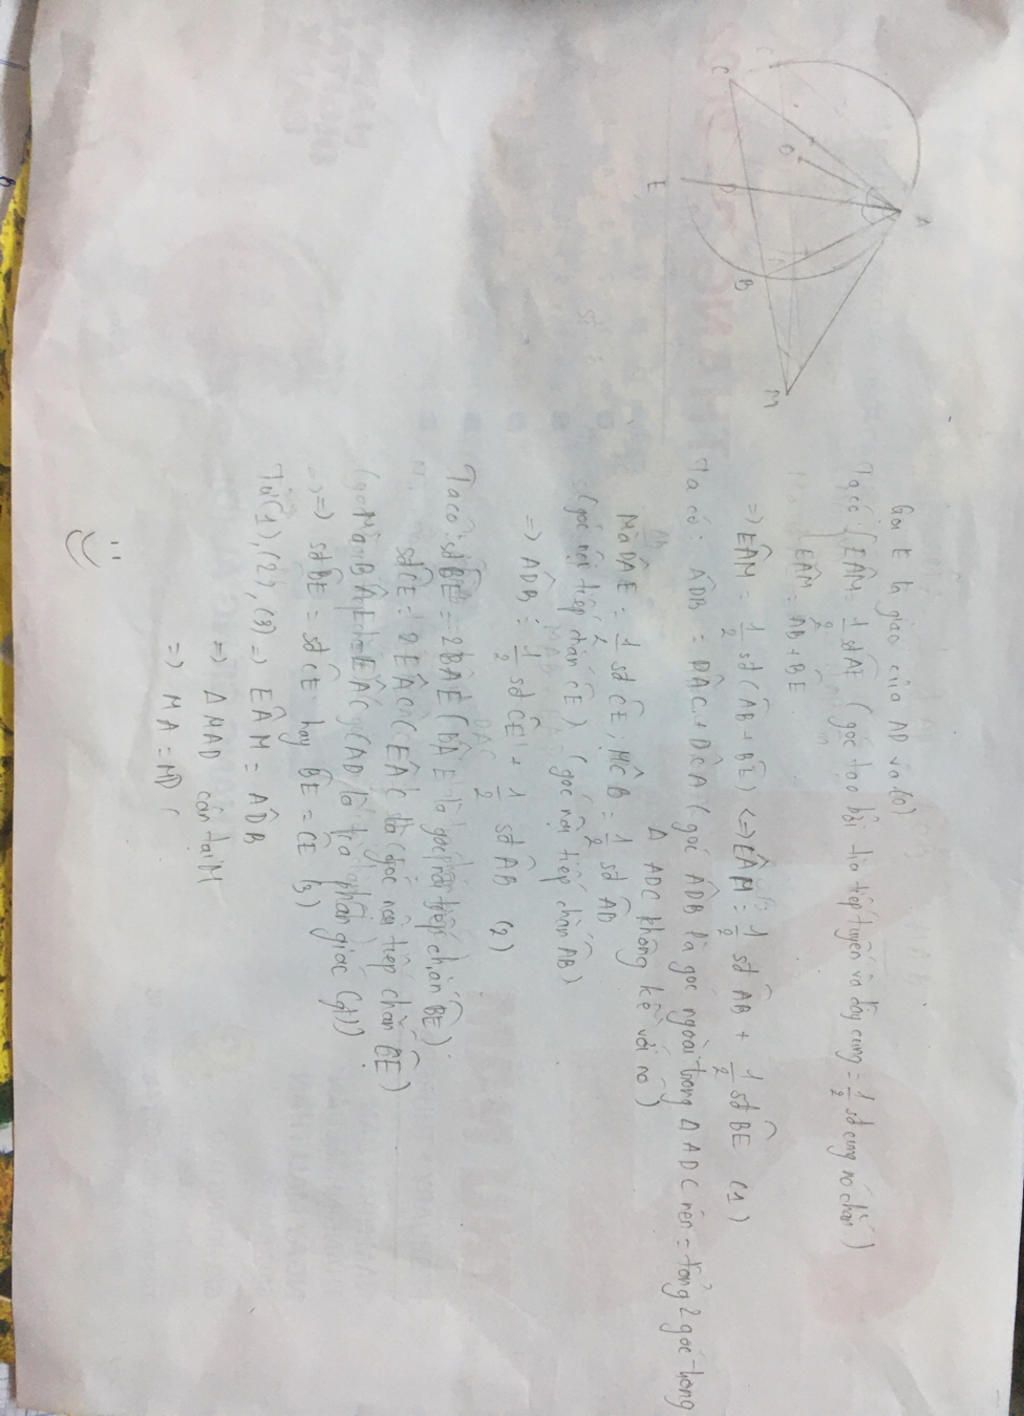 A
C
O
D
E
B
M
Gọi E là giao của AD và (O)
Ta có: { EÂM = 1/2 sđ AE ( góc tạo bởi tia tiếp tuyến và dây cung = 1/2 sđ cung nó chắn )
EÂM = AB + BE
=) EÂM = 1/2 sđ ( AB + BE ) <=> EÂM = 1/2 sđ AB + 1/2 sđ BE (1)
Ta có: AD̂B = DÂC + DĈA ( góc AD̂B là góc ngoài trong Δ ADC nên = tổng 2 góc trong
Δ ADC không kề với nó )
Mà DÂE = 1/2 sđ CE ; MĈB = 1/2 sđ AB
(góc nội tiếp chắn CE) (góc nội tiếp chắn AB)
=) AD̂B = 1/2 sđ CE + 1/2 sđ AB (2)
Ta có: sđ BE = 2 BÂE ( BÂE là góc nội tiếp chắn BE)
sđ CE = 2 EÂC ( EÂC là góc nội tiếp chắn CE )
Mà BÂE = EÂC ( AD là tia phân giác (gt))
=) sđ BE = sđ CE hay BE = CE (3)
Từ (1), (2), (3) =) EÂM = AD̂B
=) Δ MAD cân tại M
=) MA = MD (